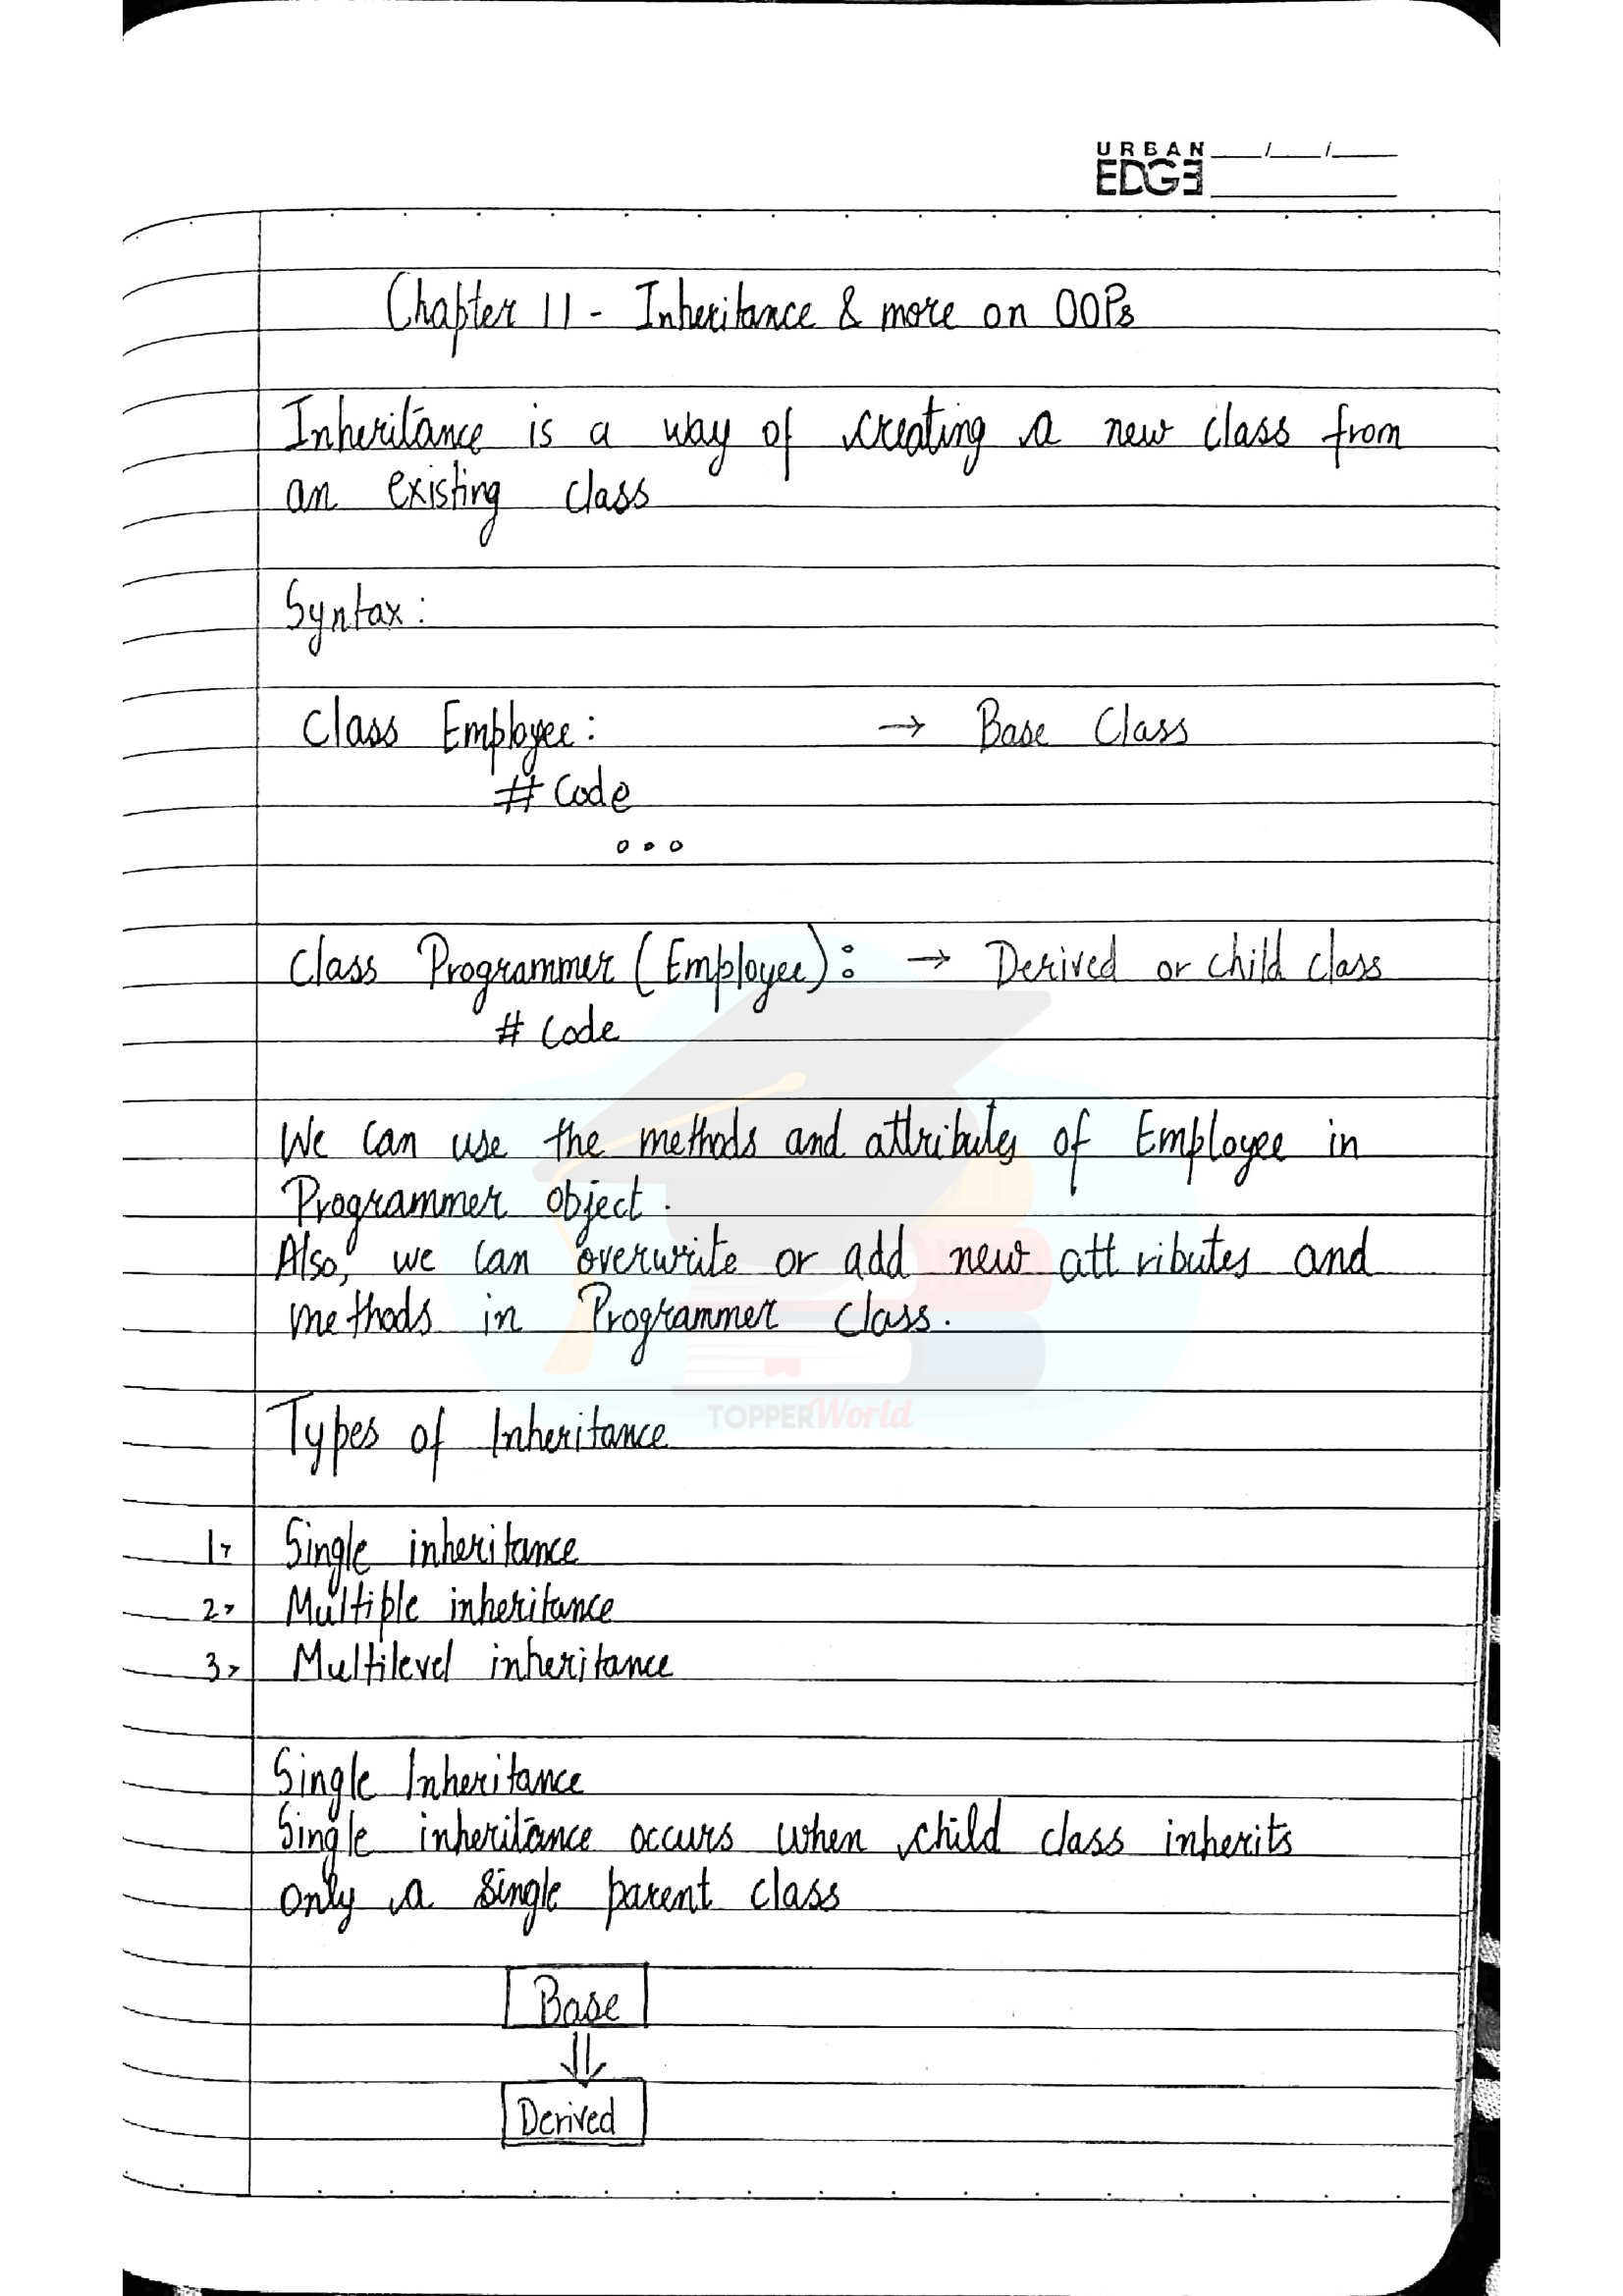 URBAN
EDGE
Chapter 11 - Inheritance & more on OOPs
Inheritance is a way of creating a new class from
an existing class
Syntax:
Class Employee: → Base Class
# Code
...
Class Programmer (Employee): → Derived or child class
# Code
We can use the methods and attributes of Employee in
Programmer object.
Also, we can overwrite or add new attributes and
methods in Programmer class.
TOPPERWorld
Types of Inheritance
1> Single inheritance
2> Multiple inheritance
3> Multilevel inheritance
Single Inheritance
Single inheritance occurs when child class inherits
only a single parent class
Base
⇓
Derived